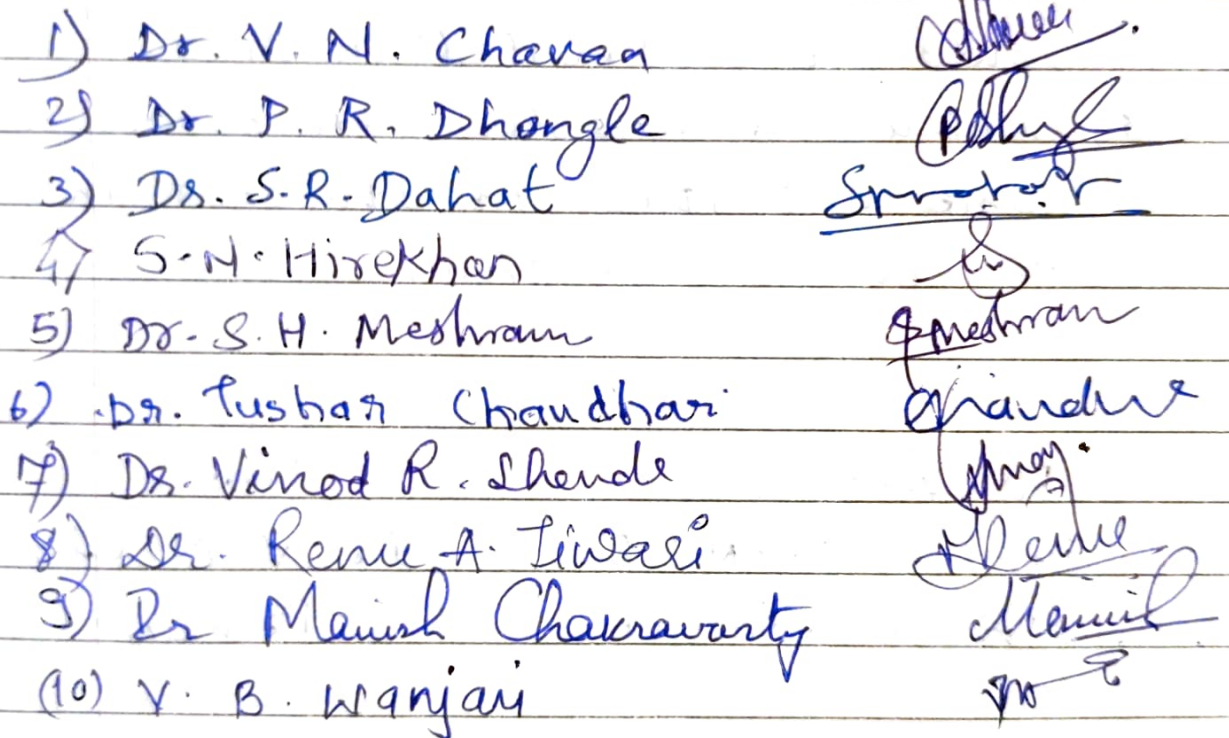 1) Dr. V. N. Chavan
2) Dr. P. R. Dhongle
3) Dr. S. R. Dahat
4) S. N. Hirekhan
5) Dr. S. H. Meshram Smeshram
6) Dr. Tushar Chaudhari
7) Dr. Vinod R. Shende
8) Dr. Renu A. Tiwari Renu
9) Dr Manish Chakravarty Manish
(10) V. B. Wanjari